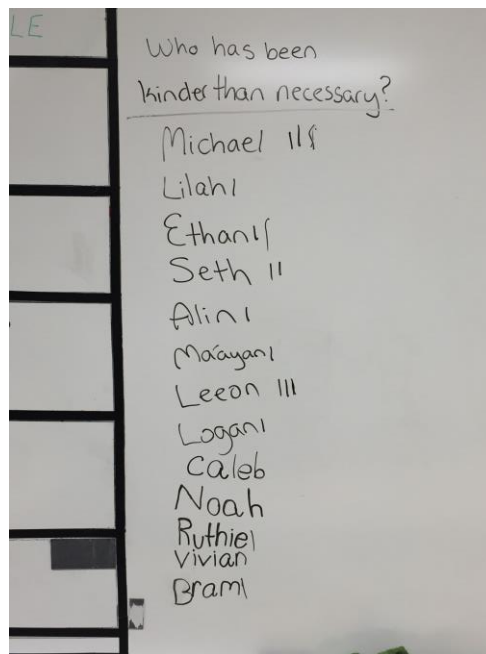 LE
Who has been
kinder than necessary?
Michael III
Lilah I
Ethan II
Seth II
Alin I
Ma'ayan I
Leeon III
Logan I
Caleb
Noah
Ruthie I
Vivian
Bram I